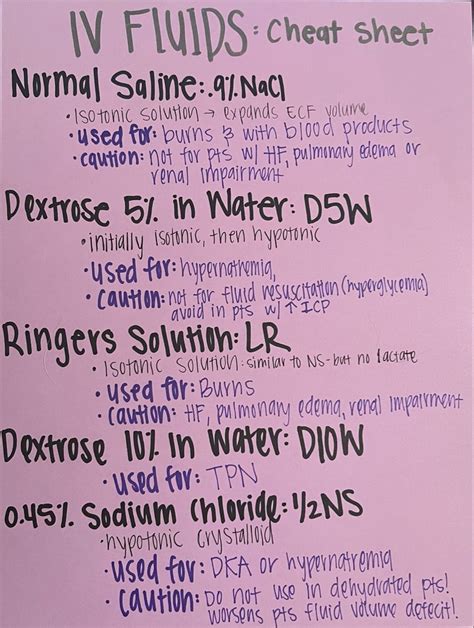 IV FLUIDS: Cheat Sheet
Normal Saline: .9% NaCl
• Isotonic solution → expands ECF volume
• used for: burns & with blood products
• caution: not for pts w/ HF, pulmonary edema or
renal impairment
Dextrose 5% in Water: D5W
• initially isotonic, then hypotonic
• used for: hypernatremia,
• caution: not for fluid resuscitation (hyperglycemia)
avoid in pts w/ ↑ ICP
Ringers Solution: LR
• Isotonic solution: similar to NS - but no lactate
• used for: Burns
• caution: HF, pulmonary edema, renal impairment
Dextrose 10% in Water: D10W
• used for: TPN
0.45% Sodium Chloride: 1/2NS
• hypotonic crystalloid
• used for: DKA or hypernatremia
• caution: Do not use in dehydrated pts!
worsens pts fluid volume defecit!